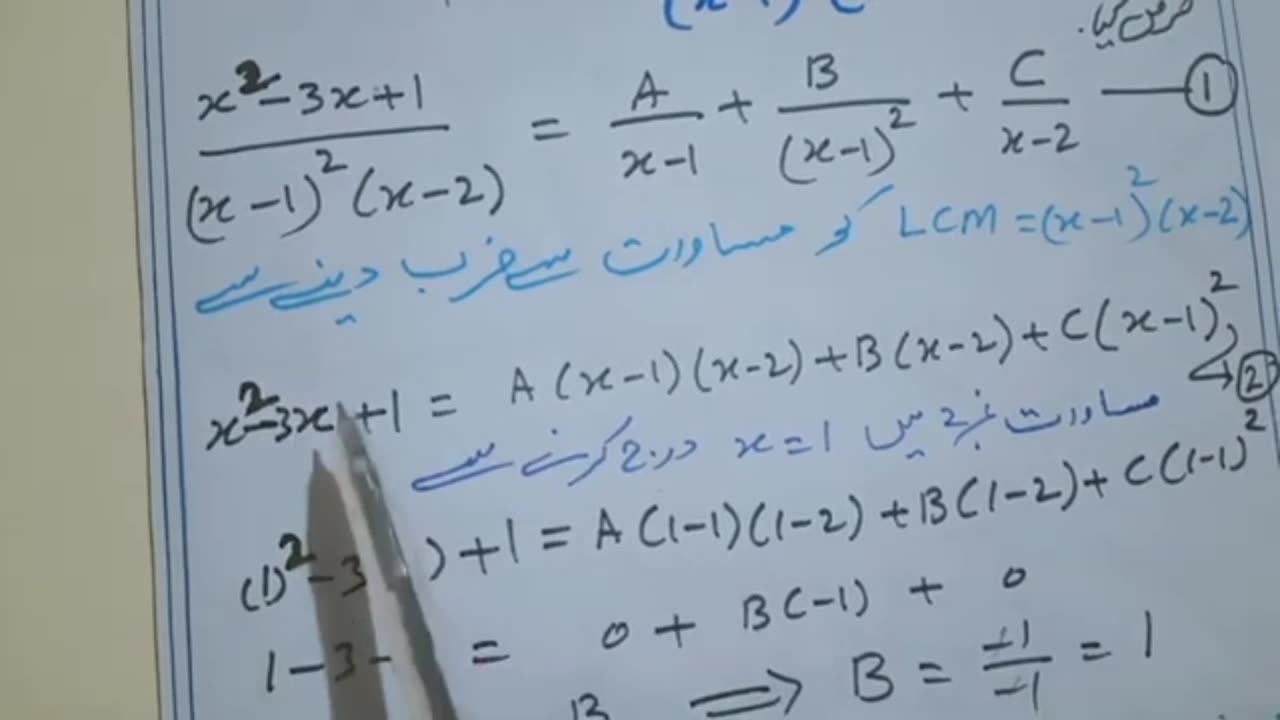 فرض کیا۔
x²-3x+1 / (x-1)²(x-2) = A/(x-1) + B/(x-1)² + C/(x-2) — ①
LCM = (x-1)²(x-2) کو مساوات سے ضرب دینے سے
x²-3x+1 = A(x-1)(x-2) + B(x-2) + C(x-1)² → ②
مساوات نمبر 2 میں x=1 درج کرنے سے
(1)²-3 )+1 = A(1-1)(1-2) + B(1-2) + C(1-1)²
1-3- = 0 + B(-1) + 0
B ⟹ B = -1/-1 = 1